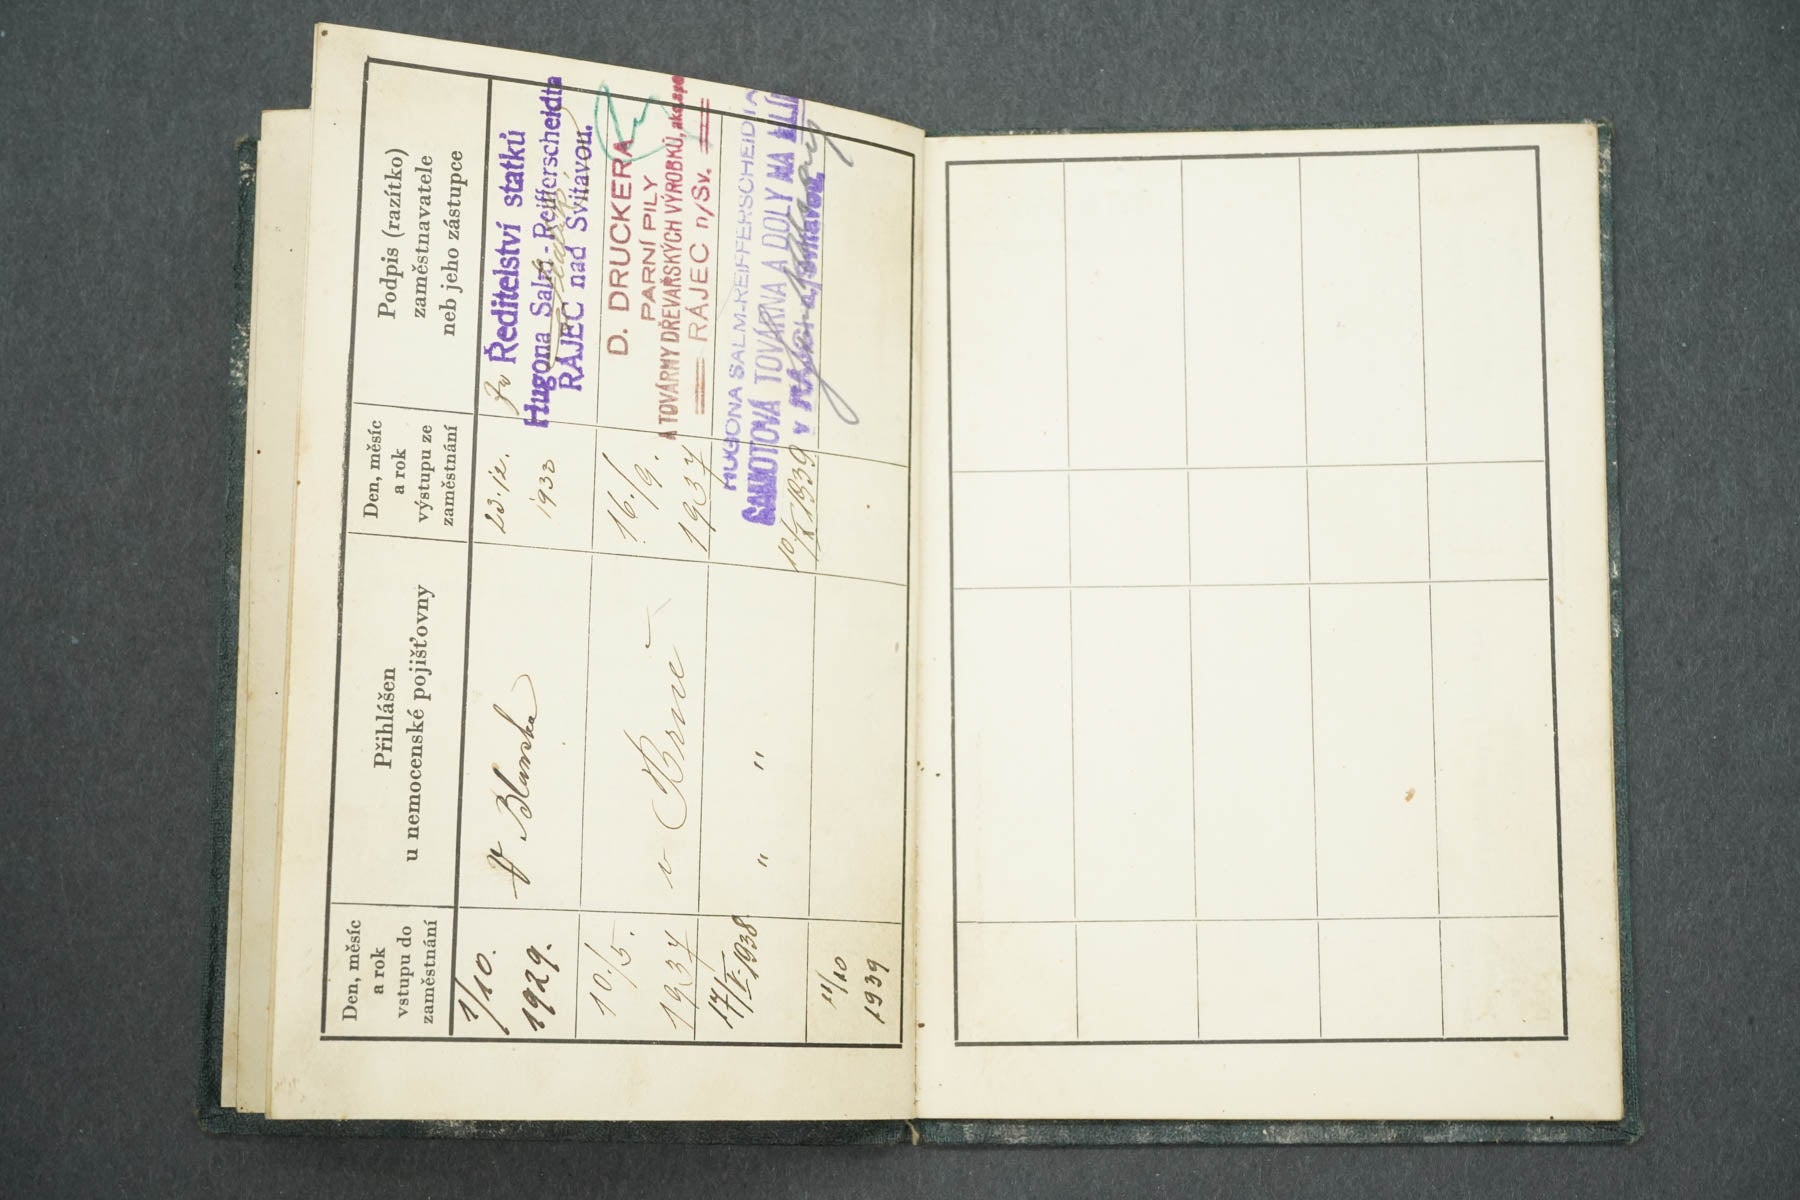 Den, měsíc
a rok
vstupu do
zaměstnání
Přihlášen
u nemocenské pojišťovny
Den, měsíc
a rok
výstupu ze
zaměstnání
Podpis (razítko)
zaměstnavatele
neb jeho zástupce
1/10.
1929.
V Blansku
23./12.
1932
Ředitelství statků
Hugona Salm-Reifferscheidta
RÁJEC nad Svitavou.
10./5.
1937
v Brně
16./9.
1937
D. DRUCKERA
PARNÍ PILY
A TOVÁRNY DŘEVAŘSKÝCH VÝROBKŮ, akc. spol
RÁJEC n/Sv.
17/V. 1938
" "
10/X 1939
HUGONA SALM-REIFFERSCHEIDTA
ŠAMOTOVÁ TOVÁRNA A DOLY NA
v
11/10
1939